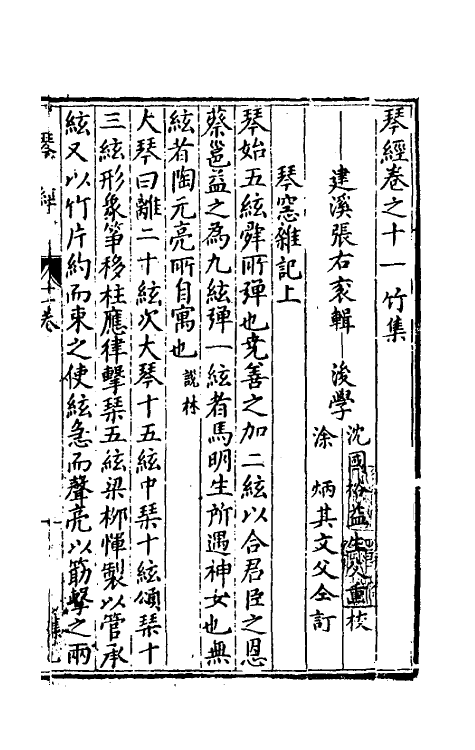 琴經卷之十一 竹集
建溪張右袞輯 後學
沈國裕益生父重校
涂 炳其文父仝訂
琴窓雜記上
琴始五絃舜所彈也堯善之加二絃以合君臣之恩
蔡邕益之為九絃彈一絃者馬明生所遇神女也無
絃者陶元亮所自寓也 說林
大琴曰離二十絃次大琴十五絃中琴十絃頌琴十
三絃形象箏移柱應律擊琴五絃梁柳惲製以管承
絃又以竹片約而束之使絃急而聲亮以筯擊之兩
琴經 十一卷